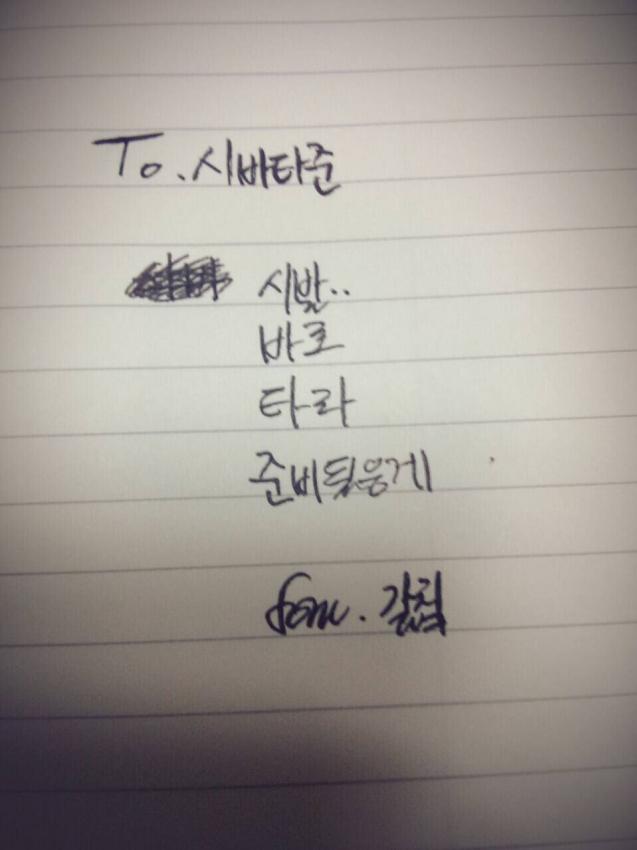 To. 시바타준
시발..
바로
타라
준비됬응게